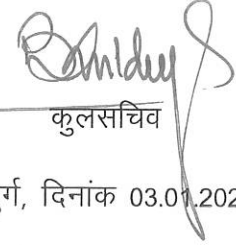 कुलसचिव
र्ग, दिनांक 03.01.202